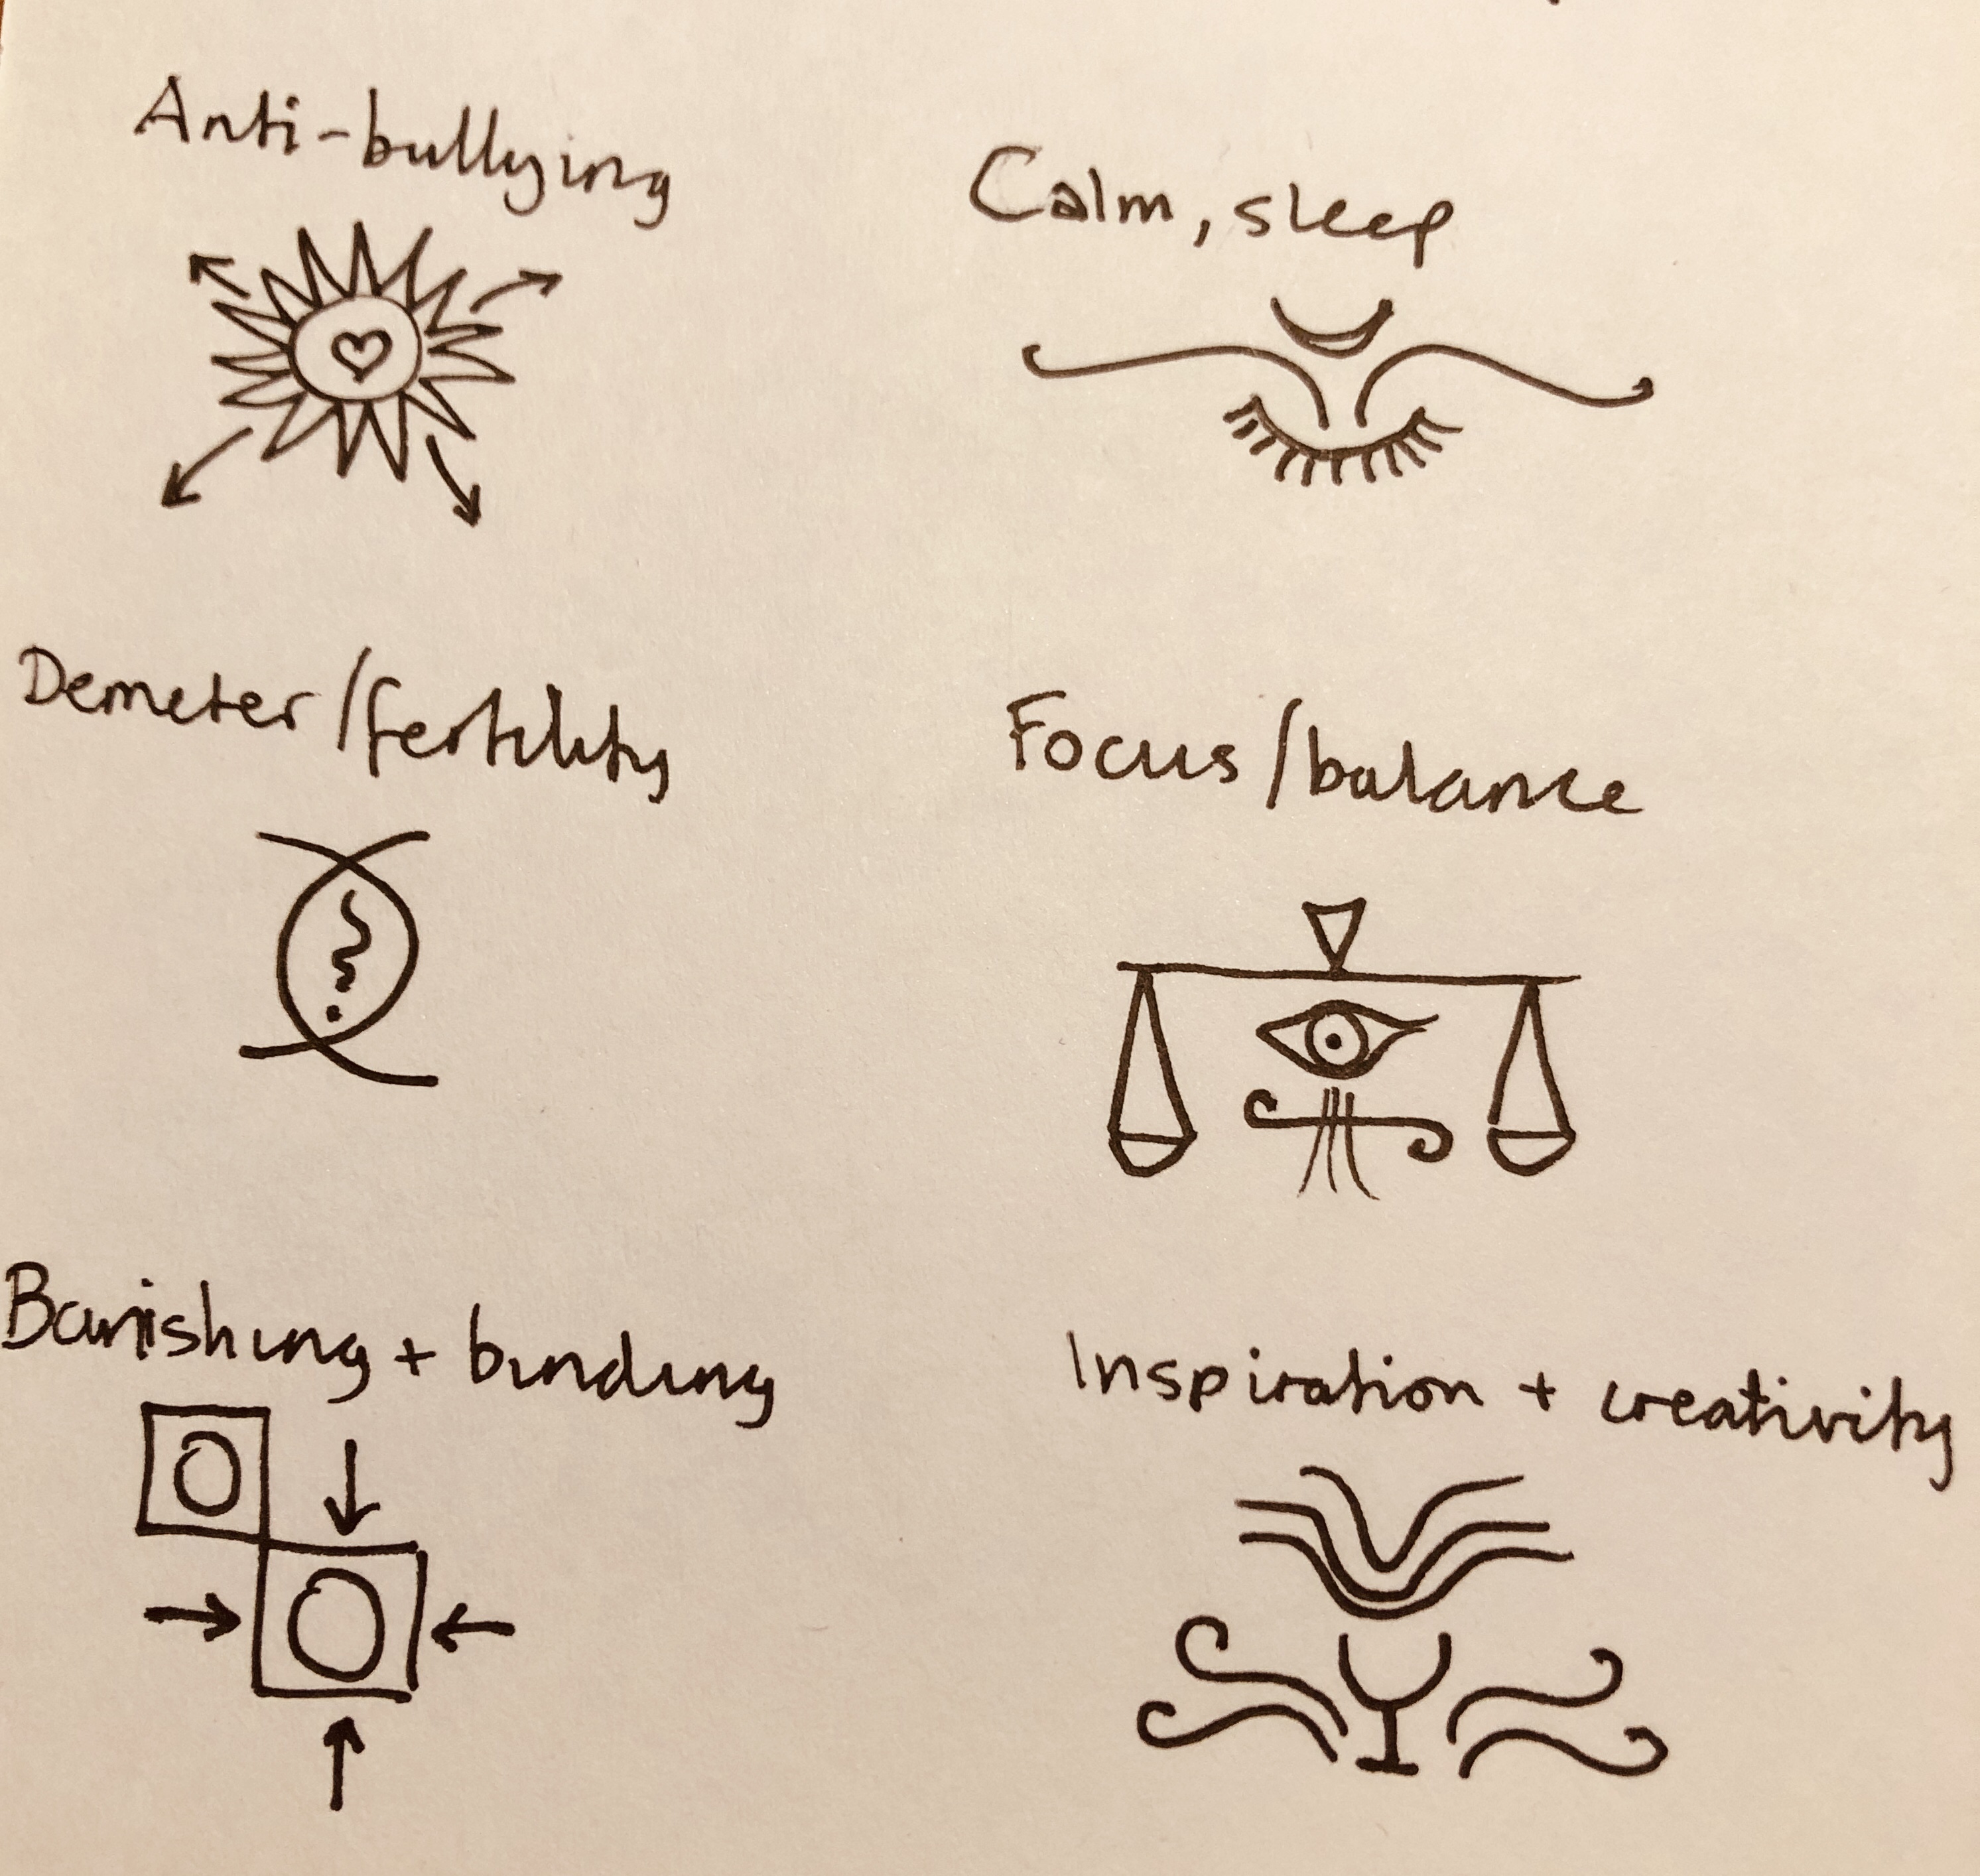 Anti-bullying
Calm, sleep
Demeter/fertility
Focus/balance
Banishing + binding
Inspiration + creativity